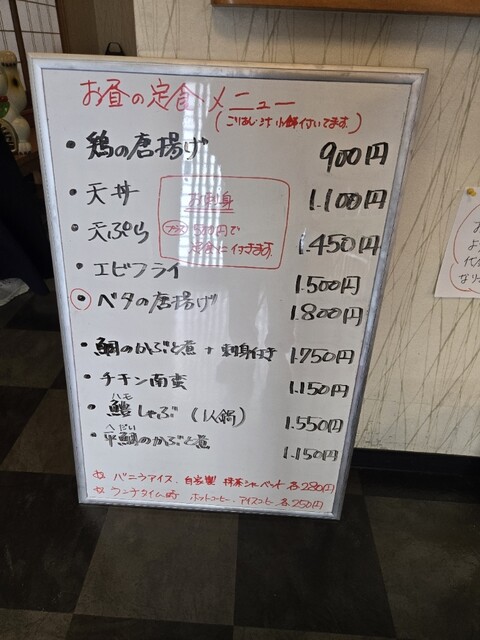 お昼の定食メニュー
(ごはん 汁 小鉢付いてます。)
・鶏の唐揚げ 900円
・天丼 1.100円
お刺身
プラス 580円で
定食に付きます。
・天ぷら 1.450円
・エビフライ 1.500円
・ベタの唐揚げ 1.800円
・鯛のかぶと煮 + 刺身付き 1.750円
・チキン南蛮 1.150円
ハモ
・鱧しゃぶ (1人鍋) 1.550円
へだい
・平鯛のかぶと煮 1.150円
☆ バニラアイス、自家製 抹茶シャーベット 各280円
☆ ランチタイム时 ホットコーヒー、アイスコーヒー 各250円